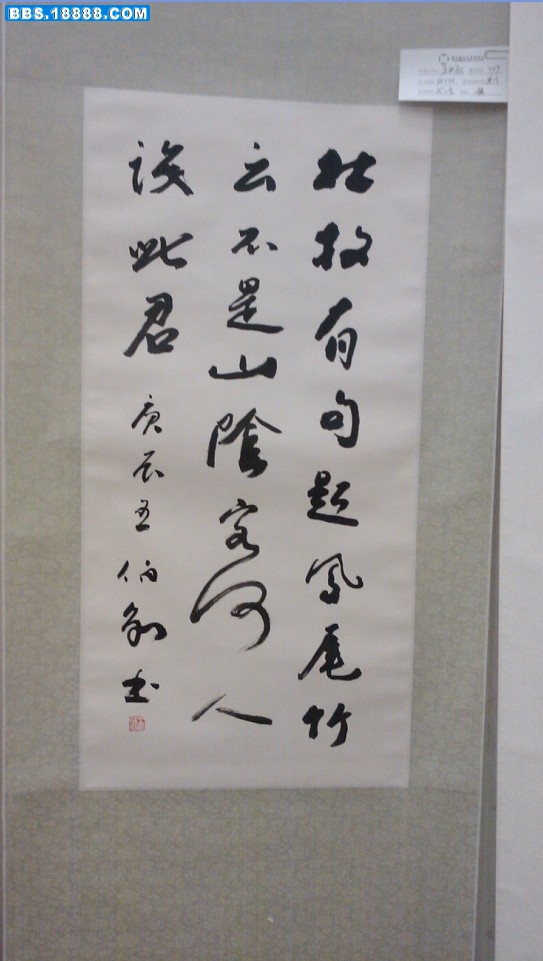 BBS.18888.COM
杜牧有句题凤尾竹
云不是山阴客何人
误此君庚辰玉伯勋书